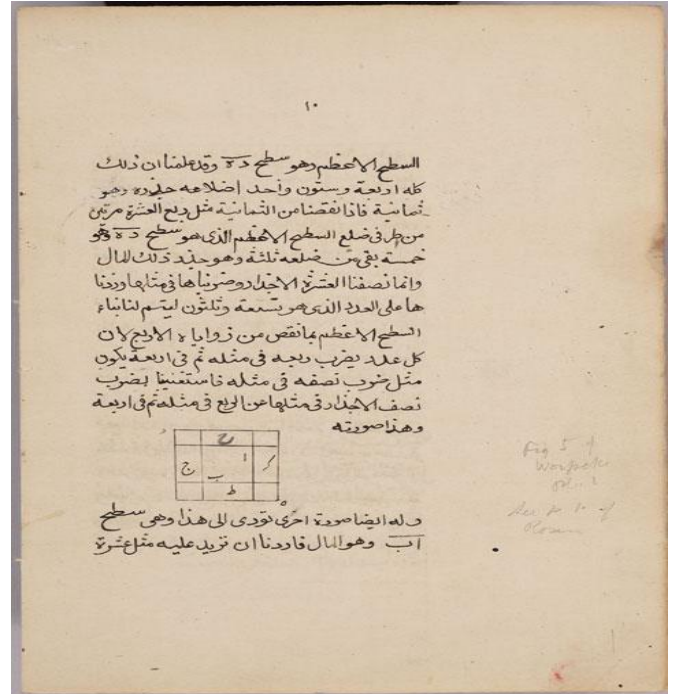 ١٠
السطح الاعظم وهو سطح ده وقد علمنا ان ذلك
كله اربعة وستون واحد اضلاعه جذره وهو
ثمانية فاذا نقصنا من الثمانية مثل ربع العشرة مرتين
من طرفى ضلع السطح الاعظم الذى هو سطح ده وهو
خمسة بقى من ضلعه ثلثة وهو جذر ذلك المال
وانما نصفنا العشرة الاجذار وضربناها فى مثلها وزدنا
ها على العدد الذى هو تسعة وثلثون ليتم لنا بناء
السطح الاعظم بما نقص من زواياه الاربع لان
كل عدد يضرب ربعه فى مثله ثم فى اربعة يكون
مثل ضرب نصفه فى مثله فاستغنينا بضرب
نصف الاجذار فى مثلها عن الربع فى مثله ثم فى اربعة
وهذا صورته
ح
ج ب ا
ط
ه
وله ايضا صورة اخرى تودى الى هذا وهى سطح
اب وهو المال فاردنا ان نزيد عليه مثل عشرة
Fig 5 of
See p. of
Rosen